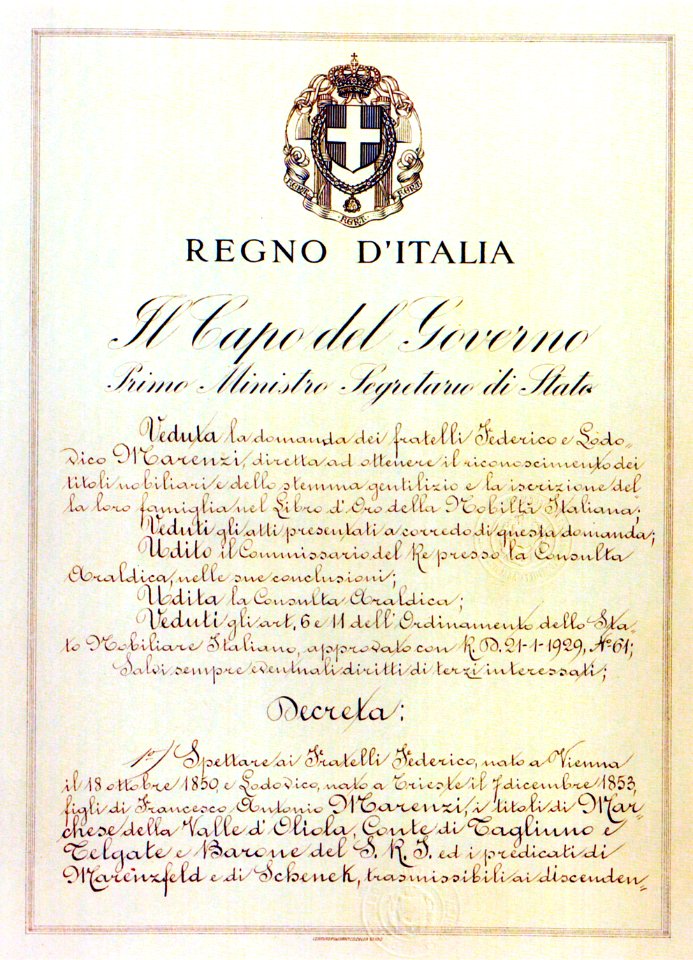 F.E.R.T.
F.E.R.T.
F.E.R.T.
REGNO D'ITALIA
Il Capo del Governo
Primo Ministro Segretario di Stato
Veduta la domanda dei fratelli Federico e Lodo-
vico Marenzi, diretta ad ottenere il riconoscimento dei
titoli nobiliari e dello stemma gentilizio e la iscrizione del
la loro famiglia nel Libro d'Oro della Nobiltà Italiana;
Veduti gli atti presentati a corredo di questa domanda;
Udito il Commissario del Re presso la Consulta
Araldica, nelle sue conclusioni;
Udita la Consulta Araldica;
Veduti gli art. 6 e 11 dell'Ordinamento dello Sta-
to Nobiliare Italiano, approvato con R. D. 21-1-1929, No 61;
Salvi sempre eventuali diritti di terzi interessati;
Decreta:
1o/ Spettare ai Fratelli Federico, nato a Vienna
il 18 ottobre 1850, e Lodovico, nato a Trieste il 7 dicembre 1853,
figli di Francesco Antonio Marenzi, i titoli di Mar-
chese della Valle d'Oliola, Conte di Tagliuno e
Telgate e Barone del S. R. I. ed i predicati di
Marenzfeld e di Scheneck, trasmissibili ai discenden-